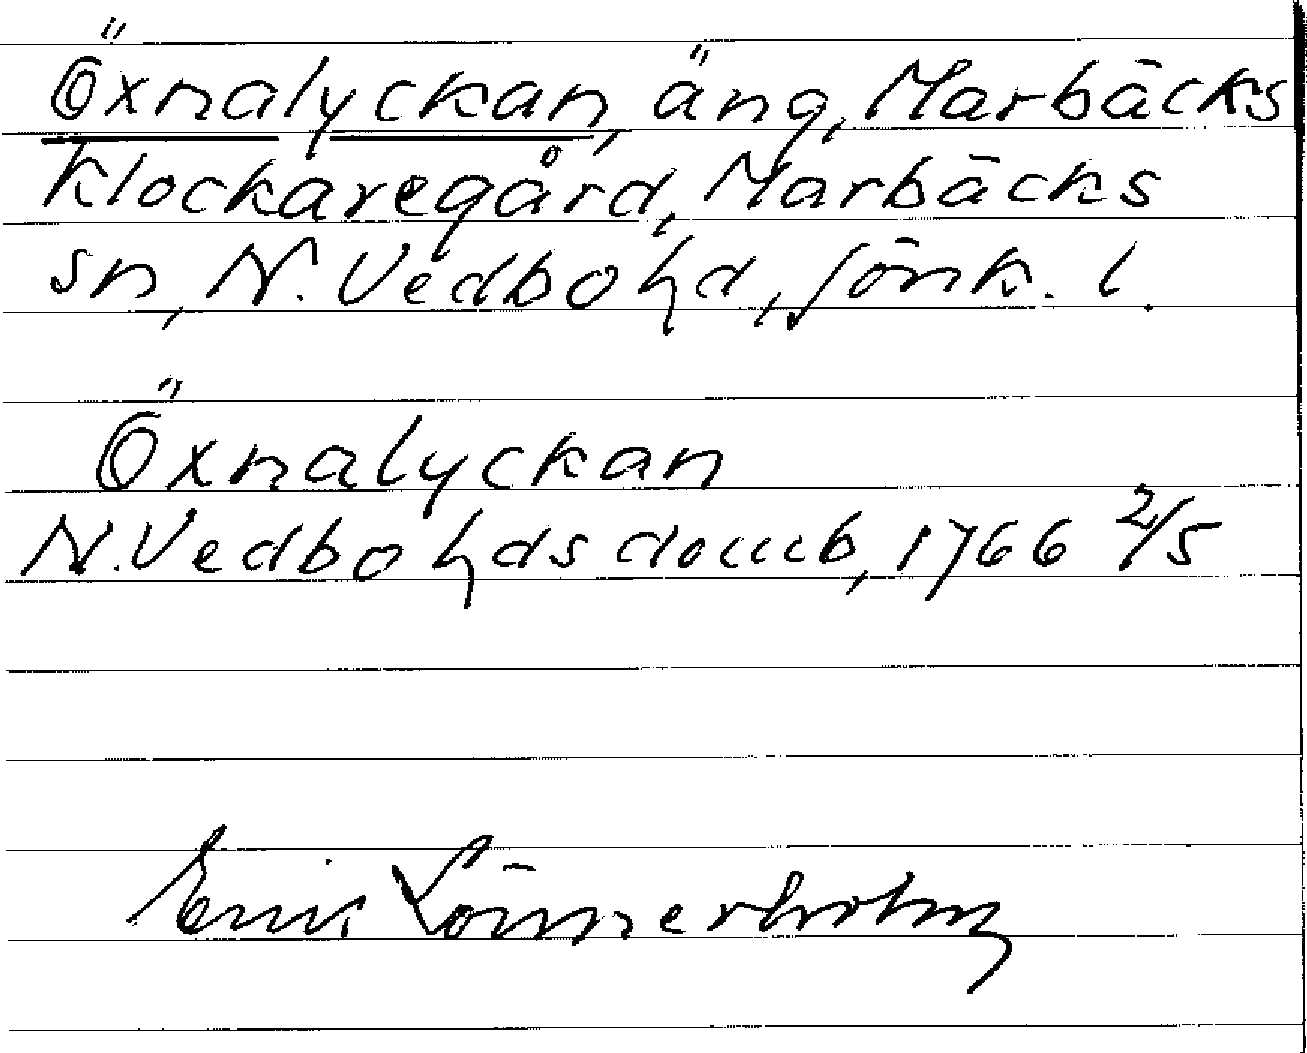 Öxnalyckan, äng, Marbäcks
Klockaregård, Marbäcks
sn, N. Vedbo hd, Jönk. l.
Öxnalyckan
N. Vedbo hds domb, 1766 2/5
Erik Lönnerholm